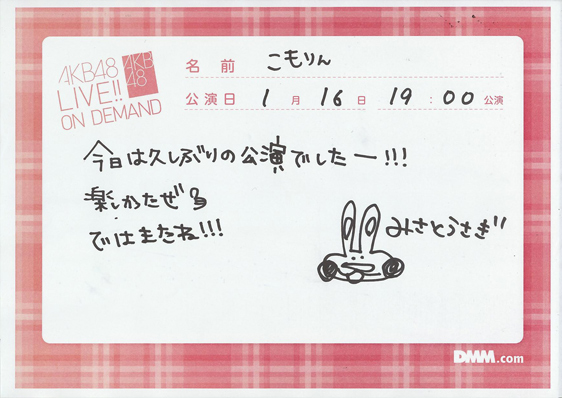 AKB48
LIVE!!
ON DEMAND
AKB
48
名前 こもりん
公演日 1月16日 19:00公演
今日は久しぶりの公演でしたー!!!
楽しかたぜ
ではまたね!!!
みさとうさぎ
DMM.com